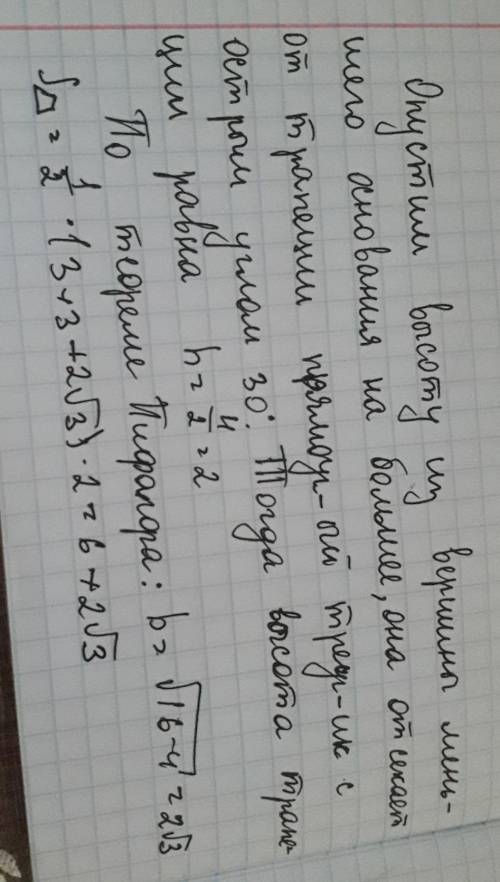 Опустим высоту из вершины мень-
шего основания на большее, она отсекает
от трапеции прямоуг-ый треуг-ик с
острым углом 30°. Тогда высота трапе-
ции равна h = 4/2 = 2
По теореме Пифагора: b = √16-4 = 2√3
S△ = 1/2 · (3+3+2√3) · 2 = 6 + 2√3